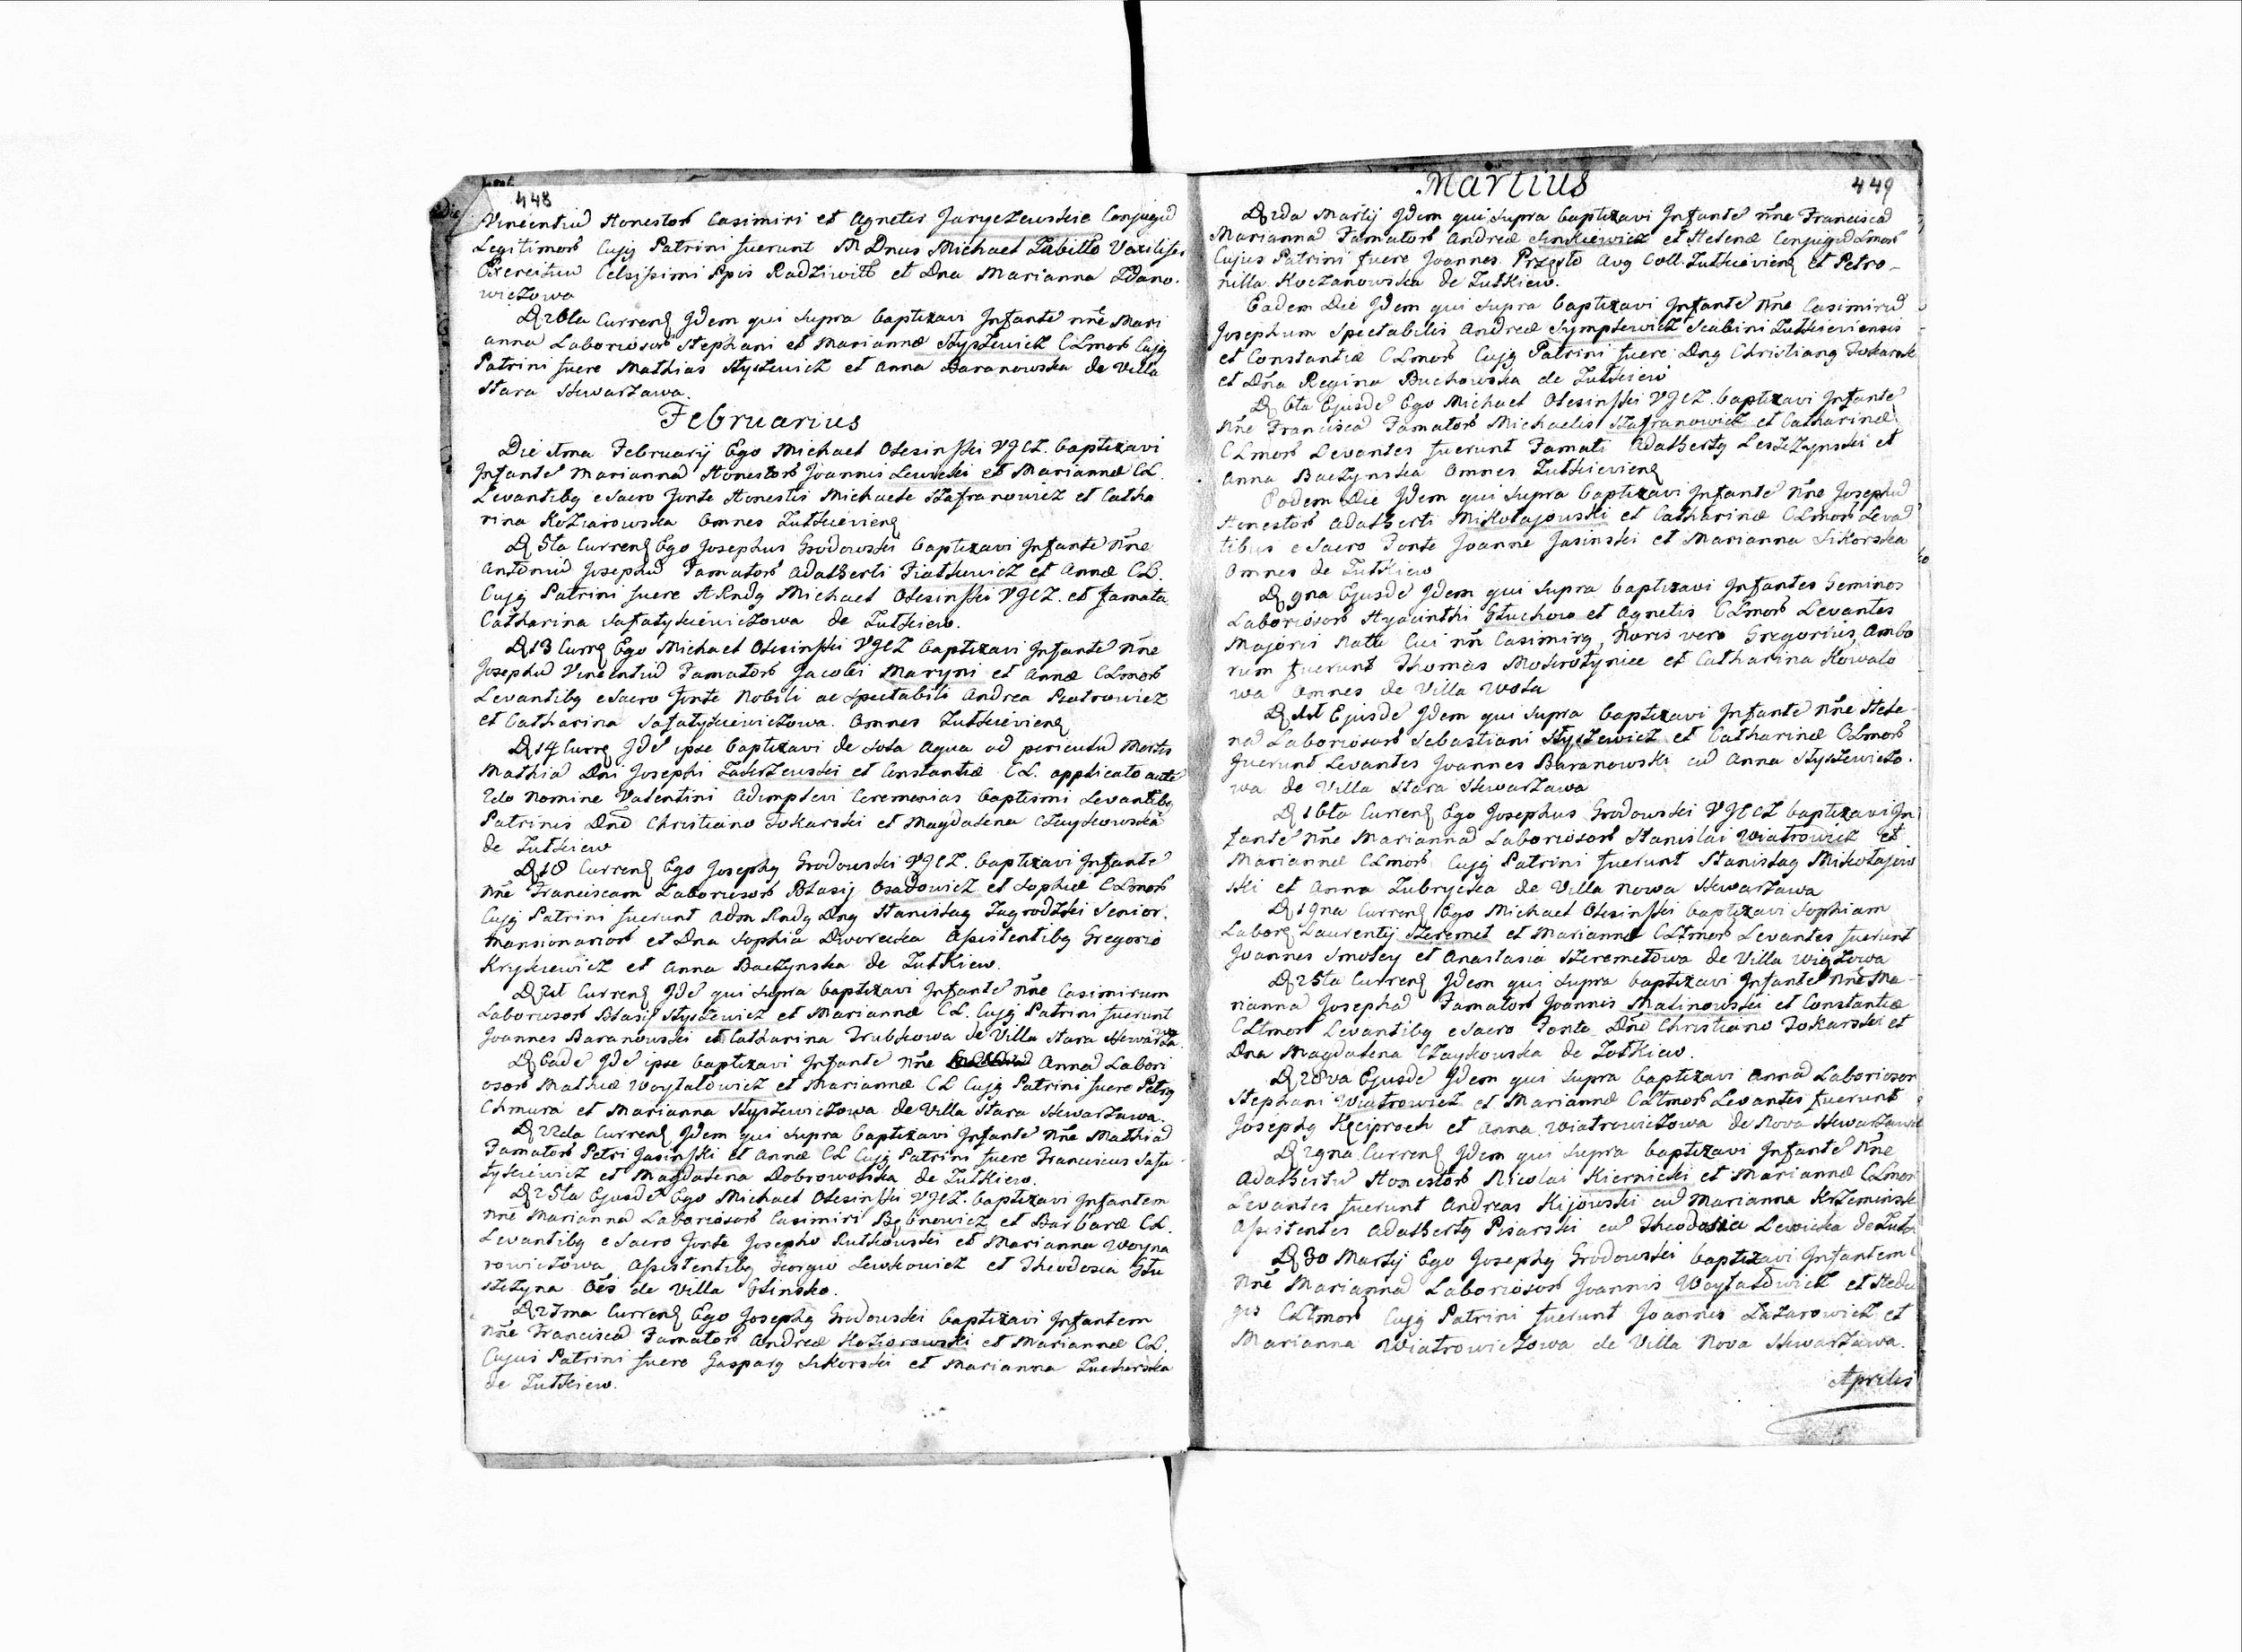 448
Vincentiũ Honestor Casimiri et Agnetis Jaryczewskie Conjugũ
Legitimor Cujq Patrini fuerunt M Dnus Michael Zabitto Vexilifer
Exercituu Celsissimi Ppis Radziwitt et Dna Marianna Zdano-
wiczowa
D 26ta Curren Idem qui supra baptizavi Infante nne Mari
anna Laboriosor Stephani et Mariannæ Styszewicz CLmor Cujq
Patrini fuere Mathias Styszewicz et Anna Baranowska de Villa
Stara Skwarzawa.
Februarius
Die 1ma February Ego Michael Olesinski VJCZ. baptizavi
Infante Mariannã Honestor Joannis Lewicki et Mariannæ CL.
Levantibq e Sacro fonte Honestis Michaele Szafranowicz et Catha
rina Koziarowska Omnes Zulkievien
D 5ta Curren Ego Josephus Grodowski baptizavi Infante nne
Antoniũ Josephũ Famator Adalberti Fiatkiewicz et Annæ CL.
Cujq Patrini fuere ARndq Michael Olesinski VJCZ. et famata
Catharina Safatykiewiczowa de Zulkiew.
D 13 Curre Ego Michael Olesinski VJCZ baptizavi Infante nne
Josephũ Vincentiũ Famator Jacobi Maryni et Annæ CLmor
Levantibq e Sacro fonte Nobili ac Spectabili Andrea Piotrowicz
et Catharina Safatykiewiczowa. Omnes Zulkievien
D 14 Curre Idẽ ipse baptizavi de sola Aqua ad periculũ Mortis
Mathiã Dni Josephi Zakrzewski et Constantiæ CL. applicato autẽ
2do Nomine Valentini Adimplevi Ceremonias baptismi Levantibq
Patrinis Dno Christiano Tokarski et Magdalena Czaykowska
de Zulkiew
D 18 Curren Ego Josephq Grodowski VJCZ. baptizavi Infante
nne Franciscam Laboriosor Blasij Osadowicz et Sophiæ CLmor
Cujq Patrini fuerunt Adm Rndq Dnq Stanislaq Zagrodzki Senior.
Mansionarior et Dna Sophia Dworecka Assistentibq Gregorio
Kryskiewicz et Anna Baczynska de Zulkiew.
D 21 Curren Idẽ qui supra baptizavi Infante nne Casimirum
Laboriosor Blasij Styszewicz et Mariannæ CL. Cujq Patrini fuerunt
Joannes Baranowski et Catharina Trubkowa de Villa Stara Skwarza wa.
D Eadẽ Idẽ ipse baptizavi Infante nne Annã Labori
osor Mathiæ Woytatowicz et Mariannæ CL Cujq Patrini fuere Petrq
Chmura et Marianna Styszewiczowa de Villa Stara Skwarzawa.
D 22da Curren Idem qui supra baptizavi Infante nne Mathiã
Famator Petri Jasinski et Annæ CL Cujq Patrini fuere Franciscus Safa
tykiewicz et Magdalena Dobrowolska de Zulkiew.
D 25ta Ejusdẽ Ego Michael Olesinski VJCZ. baptizavi Infantem
nne Mariannã Laboriosor Casimiri Bębnowicz et Barbaræ CL.
Levantibq e Sacro fonte Josepho Rutkowski et Marianna Woyna
rowiczowa Assistentibq Georgio Lewkowicz et Theodosia Stu
szczyna Oẽs de Villa Glinsko.
D 27ma Curren Ego Josephq Grodowski baptizavi Infantem
nne Franciscã Famator Andreæ Koziorowski et Mariannæ CL.
Cujus Patrini fuere Gasparq Sikorski et Marianna Zucherska
de Zulkiew.
Martius
449
D 2da Martij Idem qui supra baptizavi Infante nne Franciscã
Mariannã Famator Andreæ Sinkiewicz et Helenæ Conjugũ Lmor
Cujus Patrini fuere Joannes Przesto Avg Coll. Zulkievien et Petro-
nilla Koczanowska de Zulkiew.
Eadem Die Idem qui supra baptizavi Infante nne Casimirũ
Josephum Spectabilis Andreæ Sympkiewicz Scabini Zulkieviensis
et Constantiæ CLmor Cujq Patrini fuere Dnq Christianq Tokarsk
et Dna Regina Buchowska de Zulkiew
D 6ta Ejusdẽ Ego Michael Olesinski VJCZ. baptizavi Infante
nne Franciscã Famator Michaelis Szafranowicz et Catharinæ
CLmor Levantes fuerunt Famati Adalbertq Leszczynski et
Anna Baczynska Omnes Zulkievien
Eodem Die Idem qui supra baptizavi Infante nne Josephũ
Honestor Adalberti Mikotajowski et Catharinæ CLmor Levã
tibus e Sacro Fonte Joanne Jasinski et Marianna Sikorska
Omnes de Zulkiew
D 9na Ejusdẽ Idem qui supra baptizavi Infantes Geminos
Laboriosor Hyacinthi Gtuchow et Agnetis CLmor Levantes
Majoris Natu Cui nn Casimirq, Noris vero Gregorius, Ambo
rum fuerunt Thomas Mokrotyniec et Catharina Kowalo
wa Omnes de Villa Wola
D 11 Ejusdẽ Idem qui supra baptizavi Infante nne Hele-
nã Laboriosor Sebastiani Styszewicz et Catharinæ CLmor
fuerunt Levantes Joannes Baranowski cũ Anna Styszewiczo-
wa de Villa Stara Skwarzawa
D 16ta Curren Ego Josephus Grodowski VJCCZ baptizavi In
fante nne Mariannã Laboriosor Stanislai Wiatrowicz et
Mariannæ CLmor Cujq Patrini fuerunt Stanislaq Mikotajow
ski et Anna Zubrycka de Villa Nowa Skwarzawa
D 19na Curren Ego Michael Olesinski baptizavi Sophiam
Labor Laurentij Szeremet et Mariannæ CLtmor Levantes fuerunt
Joannes Smoley et Anastasia Szeremetowa de Villa Wiązowa
D 25ta Curren Idem qui supra baptizavi Infante nne Ma-
rianna Josephã Famator Joannis Malinowski et Constantiæ
CLtmor Levantibq e Sacro Fonte Dno Christiano Tokarski et
Dna Magdalena Czaykowska de Zolkiew.
D 28va Ejusdẽ Idem qui supra baptizavi Annã Laboriosor
Stephani Wiatrowicz et Mariannæ CLtmor Levantes fuerunt
Josephq Kęciproch et Anna Wiatrowiczowa de Nova Skwarzawa
D 29na Curren Idem qui supra baptizavi Infante nne
Adalbertũ Honestor Nicolai Kiernicki et Mariannæ CLmor
Levantes fuerunt Andreas Kijowski cũ Marianna Krzeminsk
Assistentes Adalbertq Pisarski cũ Theodosia Lewicka de Zulk
D 30 Martij Ego Josephq Grodowski baptizavi Infantem
nne Mariannã Laboriosor Joannis Woytatowicz et Hedvi
gis CLtmor Cujq Patrini fuerunt Joannes Lazarowicz et
Marianna Wiatrowiczowa de Villa Nova Skwarzawa.
Aprilis